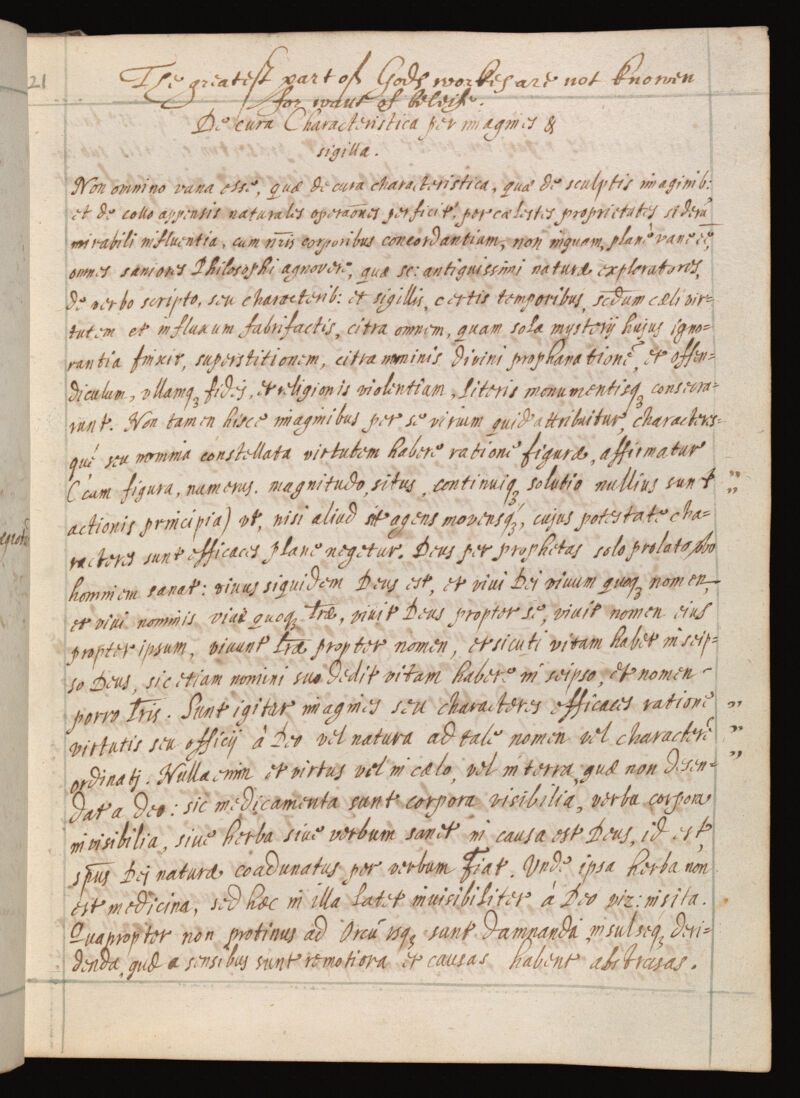 21
The greatest part of Gods workes are not knowen
for want of beleife.
De cura Characteristica per imagines &
sigilla.
Non omnino vana esse, quæ de cura characteristica, quæ de sculptis imaginib:
et de collo appensis naturales operāones perficit, per cælestes proprietates siderū
mirabili influentia, cum nr̄is corporibus concordantium, non inquam, planè vane ēē,
omnes saniores Philosophi agnovere, quæ sc: antiquissimi naturæ exploratores,
de verbo scripto, seu characterib: et sigillis, certis temporibus, scdum cæli vir=
tutem et influxum fabrifactis, citra omnem, quam sola mysterij hujus igno=
rantia finxit, superstitionem, citra numinis divini prophanationē, et offen=
diculum, vllamqꝫ fidej, et religionis violentiam, literis monumentisqꝫ consecra=
runt. Non tamen hisce imaginibus per se virium quid attribuitur, characteres=
qué seu nomina constellata virtutem habere ratione figuræ, affirmatur
(cum figura, numerus. magnitudo, situs, continuiqꝫ solutio nullius sunt
actionis principia) vt, nisi aliud sit agens movensqꝫ, cujus potestate cha=
racteres sunt efficaces plane negetur. Deus per prophetas solo prolato vbo
hominem sanat: vivus siquidem Deus est, et vivi Dei vivum quoqꝫ nomen,
et vivi nominis vivæ quoqꝫ lr̄æ, vivit Deus propter se, vivit nomen ejus
propter ipsum, vivunt lr̄æ propter nomen, et sicuti vitam habet in seip=
so Deus, sic etiam nomini suo dedit vitam habere in seipso, et nomen
porro lr̄is. Sunt igitur imagines seu characteres efficaces ratione
virtutis seu officij à Deo vel natura ad tale nomen vel characterē
ordinatj. Nulla enim et virtus vel in cælo, vel in terra, quæ non desen=
dat a deo: sic medicamenta sunt corpora visibilia, verba corpora
invisibilia, sive herba sive verbum sanet in causa est Deus, id est,
spūs Dei naturæ coadunatus per verbum Fiat. Unde ipsa herba non
est medicina, sed hæc in illa latet invisibiliter à Deo viz: insita.
Quapropter non protinus ad Orcū vsqꝫ sunt damnanda, insulseqꝫ deri=
denda, quæ a sensibus sunt remotiora et causas habent abstrusas.